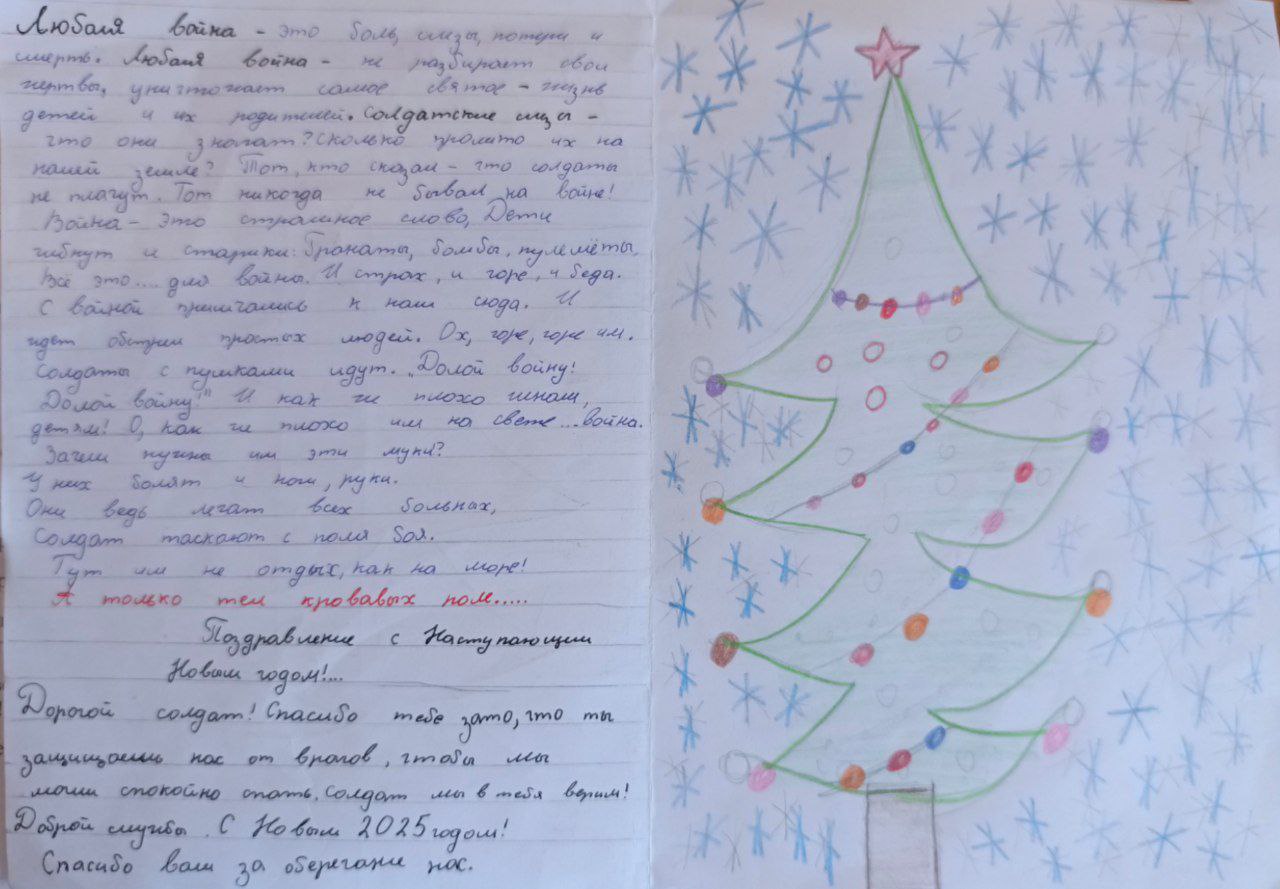 Любая война - это боль, слезы, потери и
смерть. Любая война - не разбирает свои
жертвы, уничтожает самое святое - жизнь
детей и их родителей. Солдатские слезы -
что они значат? Сколько пролито их на
нашей земле? Тот, кто сказал - что солдаты
не плачут. Тот никогда не бывал на войне!
Война - это страшное слово, Дети
гибнут и старики. Гранаты, бомбы, пулемёты,
Всё это.... для войны. И страх, и горе, и беда.
С войной примчались к нам сюда. И
идет обстрел простых людей. Ох, горе, горе им.
Солдаты с пушками идут. „Долой войну!
Долой войну!" И как же плохо женам,
детям! О, как же плохо им на свете... война.
Зачем нужны им эти муки?
У них болят и ноги, руки.
Они ведь лечат всех больных,
Солдат таскают с поля боя.
Тут им не отдых, как на море!
А только тел кровавых поле.....
Поздравление с Наступающим
Новым годом!...
Дорогой солдат! Спасибо тебе зато, что ты
защищаешь нас от врагов, чтобы мы
могли спокойно спать. Солдат мы в тебя верим!
Доброй службы. С Новым 2025 годом!
Спасибо вам за оберегание нас.